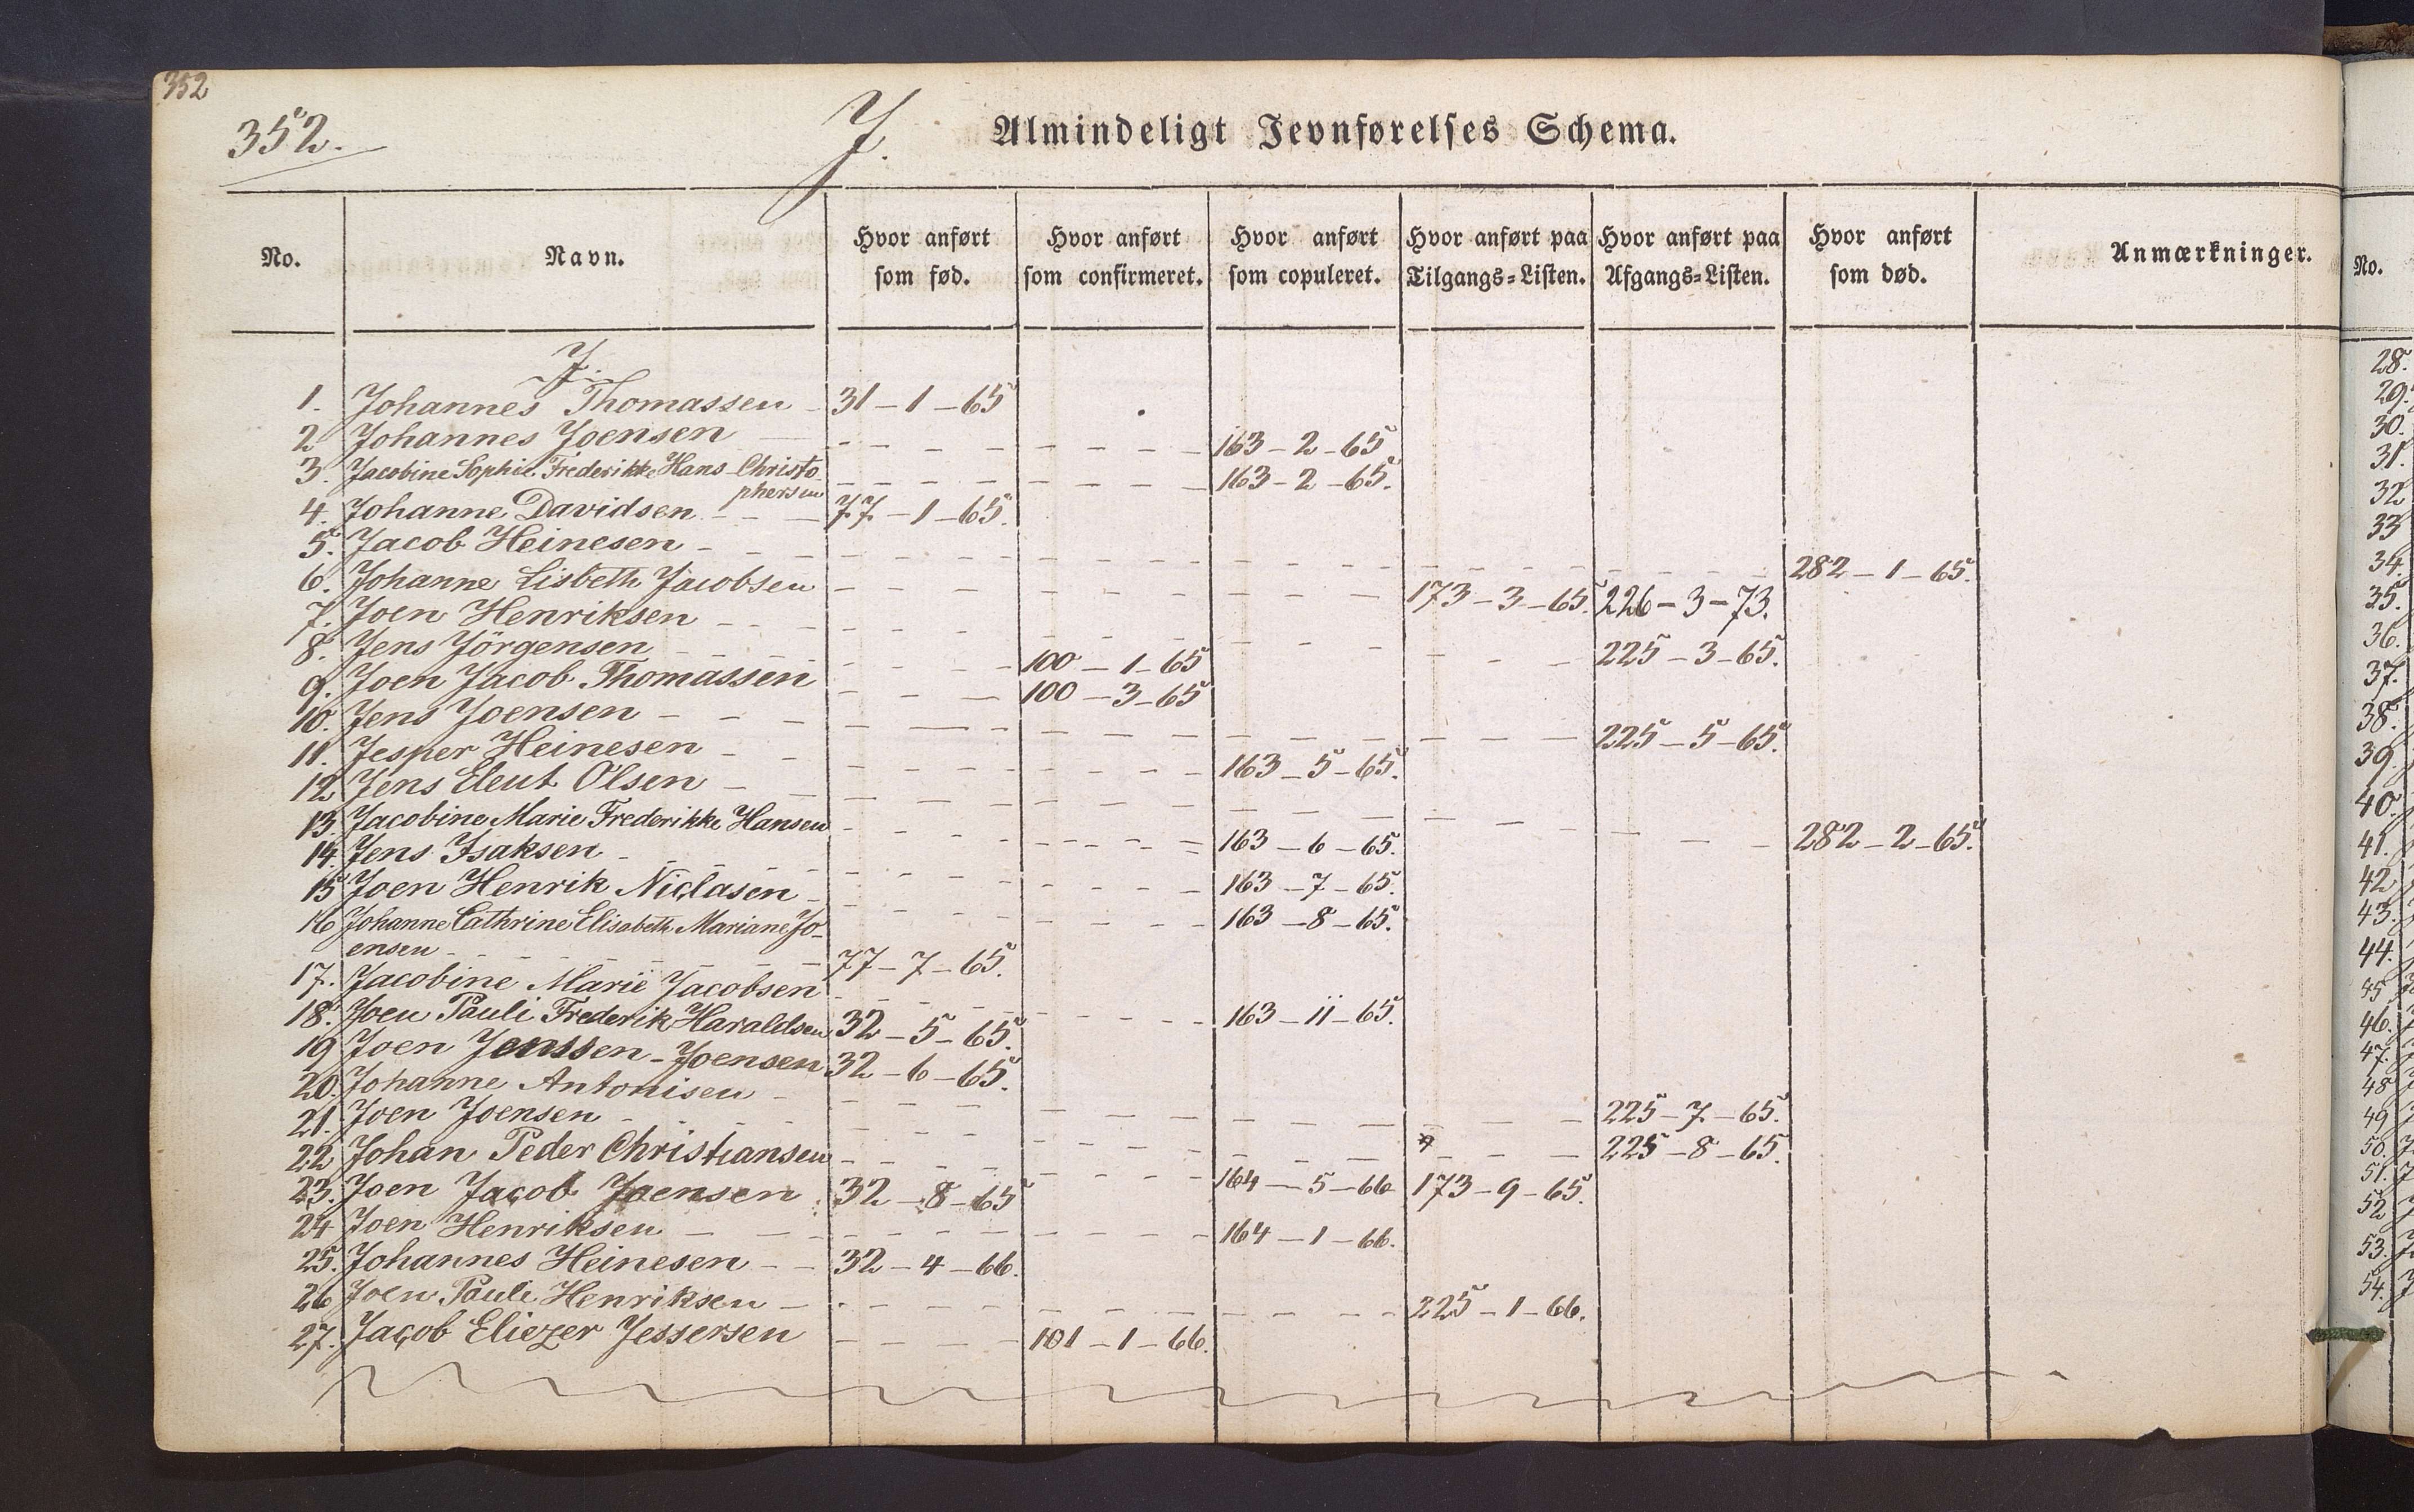 352
352.
J.
Almindeligt Jevnførelses Schema.
No. Navn. Hvor anført som fød. Hvor anført som confirmeret. Hvor anført som copuleret. Hvor anført paa Tilgangs=Listen. Hvor anført paa Afgangs=Listen. Hvor anført som død. Anmærkninger.
J.
1. Johannes Thomassen 31-1-65
2 Johannes Joensen 163-2-65
3. Jacobine Sophie Frederikke Hans Christo- 163-2-65.
phersen
4. Johanne Davidsen 77-1-65.
5. Jacob Heinesen 282-1-65.
6. Johanne Lisbeth Jacobsen 173-3-65. 226-3-73.
7. Joen Henriksen 225-3-65.
8. Jens Jörgensen 100-1-65
9. Joen Jacob Thomassen 100-3-65
10. Jens Joensen 225-5-65.
11. Jesper Heinesen 163-5-65.
12 Jens Eleut Olsen 282-2-65.
13. Jacobine Marie Frederikke Hansen 163-6-65.
14. Jens Isaksen 163-7-65.
15 Joen Henrik Niclasen 163-8-65.
16 Johanne Cathrine Elisabeth Mariane Jo-
ensen 77-7-65.
17. Jacobine Marie Jacobsen 163-11-65.
18. Joen Pauli Frederik Haraldsen 32-5-65.
19 Joen Jenssen-Joensen 32-6-65.
20. Johanne Antonisen 225-7-65.
21. Joen Joensen 225-8-65.
22 Johan Peder Christiansen 164-5-66 173-9-65.
23. Joen Jacob Joensen 32-8-65
24 Joen Henriksen 164-1-66.
25. Johannes Heinesen 32-4-66.
26 Joen Pauli Henriksen 225-1-66.
27. Jacob Eliezer Jessersen 101-1-66.
No.
28.
29.
30.
31.
32
33
34.
35.
36.
37.
38.
39.
40.
41.
42
43.
44.
45
46.
47.
48
49
50.
51.
52
53.
54.